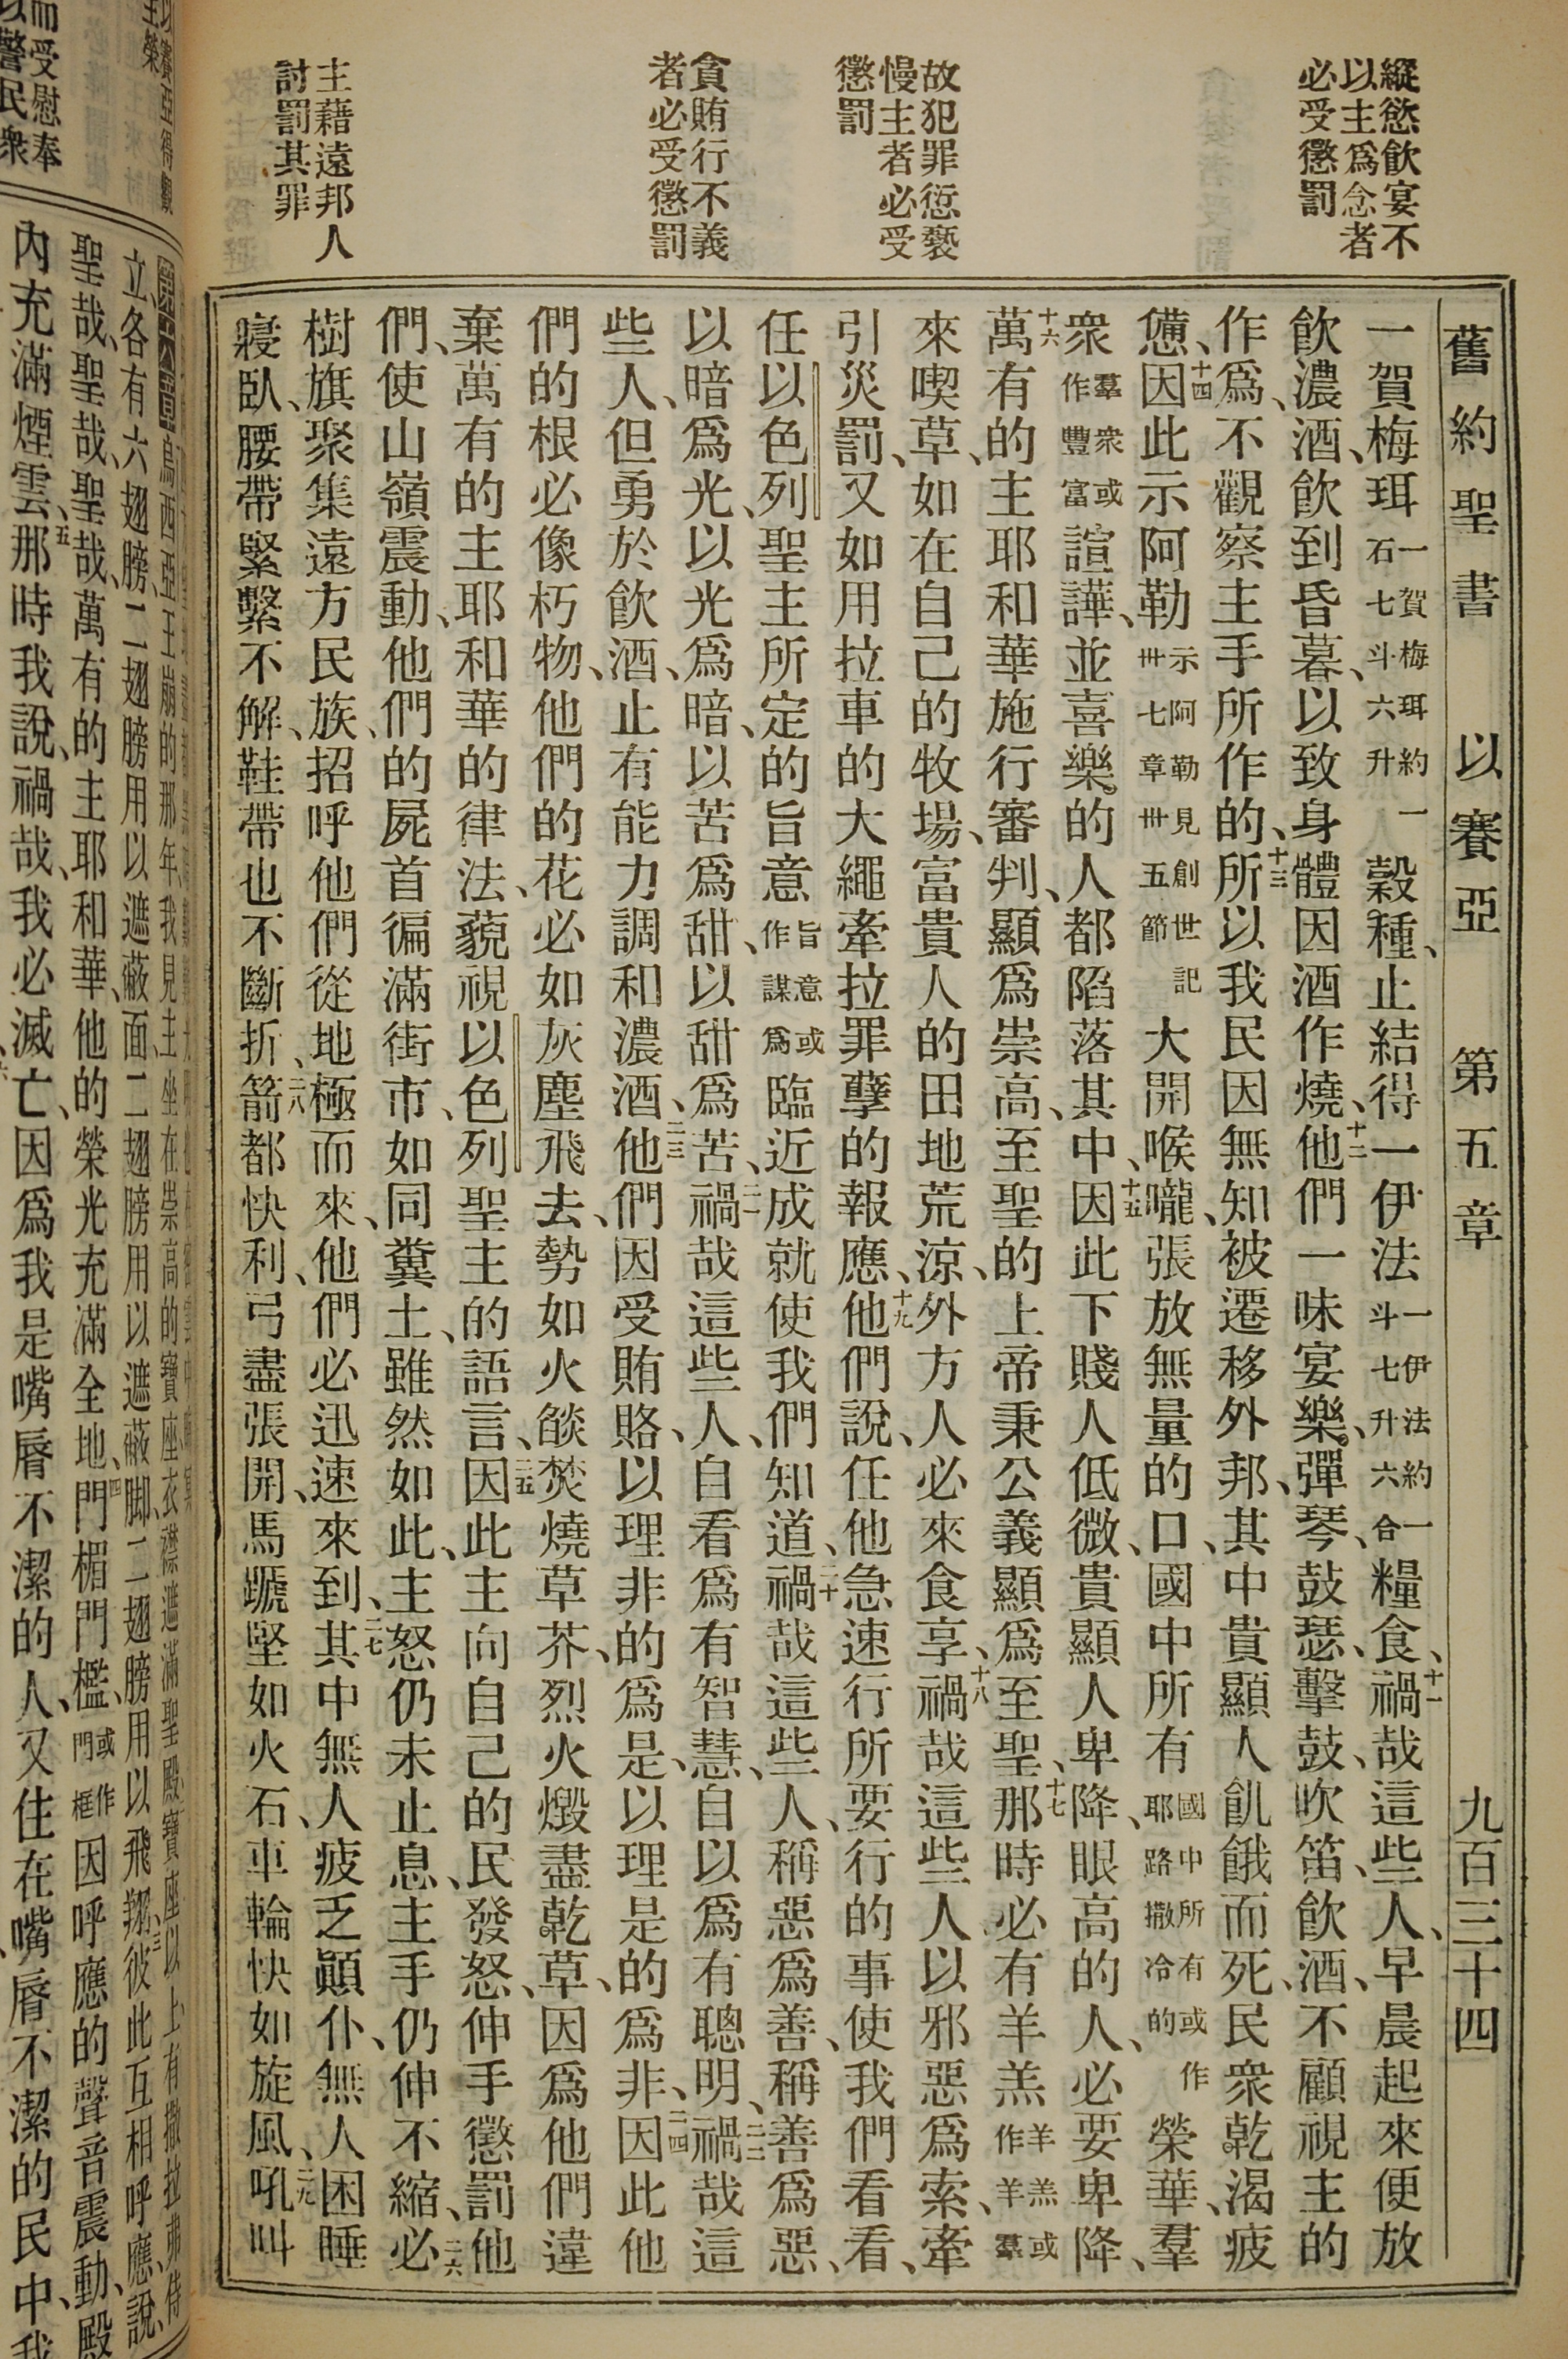 縱慾飲宴不
以主爲念者
必受懲罰
故犯罪愆褻
慢主者必受
懲罰
貪賄行不義
者必受懲罰
主藉遠邦人
討罰其罪
舊約聖書 以賽亞 第五章 九百三十四
一賀梅珥一賀梅珥約一石七斗六升穀種、止結得一伊法一伊法約一斗七升六合糧食、十一禍哉這些人、早晨起來便放
飲濃酒、飲到昏暮、以致身體因酒作燒、十二他們一味宴樂、彈琴、鼓瑟、擊鼓、吹笛、飲酒、不顧視主的
作爲、不觀察主手所作的、十三所以我民因無知被遷移外邦、其中貴顯人飢餓而死、民衆乾渴疲
憊、十四因此示阿勒示阿勒見創世記卅七章卅五節大開喉嚨、張放無量的口、國中所有國中所有或作耶路撒冷的榮華、羣
衆羣衆或作豐富諠譁、並喜樂的人都陷落其中、十五因此下賤人低微、貴顯人卑降、眼高的人、必要卑降、
十六萬有的主耶和華施行審判、顯爲崇高、至聖的上帝秉公義顯爲至聖、十七那時必有羊羔羊羔或作羊羣
來喫草、如在自己的牧場、富貴人的田地荒涼、外方人必來食享、十八禍哉這些人以邪惡爲索、牽
引災罰、又如用拉車的大繩牽拉罪孽的報應、十九他們說、任他急速行所要行的事使我們看看、
任以色列聖主所定的旨意旨意或作謀爲臨近成就使我們知道、二十禍哉這些人、稱惡爲善、稱善爲惡、
以暗爲光、以光爲暗、以苦爲甜、以甜爲苦、二一禍哉這些人、自看爲有智慧、自以爲有聰明、二二禍哉這
些人、但勇於飲酒、止有能力調和濃酒、二三他們因受賄賂、以理非的爲是、以理是的爲非、二四因此他
們的根必像朽物、他們的花必如灰塵飛去、勢如火燄焚燒草芥、烈火燬盡乾草、因爲他們違
棄萬有的主耶和華的律法、藐視以色列聖主的語言、二五因此主向自己的民發怒、伸手懲罰他
們、使山嶺震動、他們的屍首徧滿街市、如同糞土、雖然如此、主怒仍未止息、主手仍伸不縮、二六必
樹旗聚集遠方民族、招呼他們從地極而來、他們必迅速來到、二七其中無人疲乏顚仆、無人困睡
寢臥、腰帶緊繫不解、鞋帶也不斷折、二八箭都快利、弓盡張開、馬蹏堅如火石、車輪快如旋風、二九吼叫
而受慰奉
以警民衆
第六章烏西亞王崩的那年、我見主坐在崇高的寶座、衣襟遮滿聖殿、寶座以上有撒拉弗侍
立、各有六翅膀、二翅膀用以遮蔽面、二翅膀用以遮蔽脚、二翅膀用以飛翔、三彼此互相呼應、說、
聖哉、聖哉、聖哉、萬有的主耶和華、他的榮光充滿全地、四門楣門檻、或作門框因呼應的聲音震動、殿
內充滿煙雲、五那時我說、禍哉、我必滅亡、因爲我是嘴脣不潔的人、又住在嘴脣不潔的民中、我